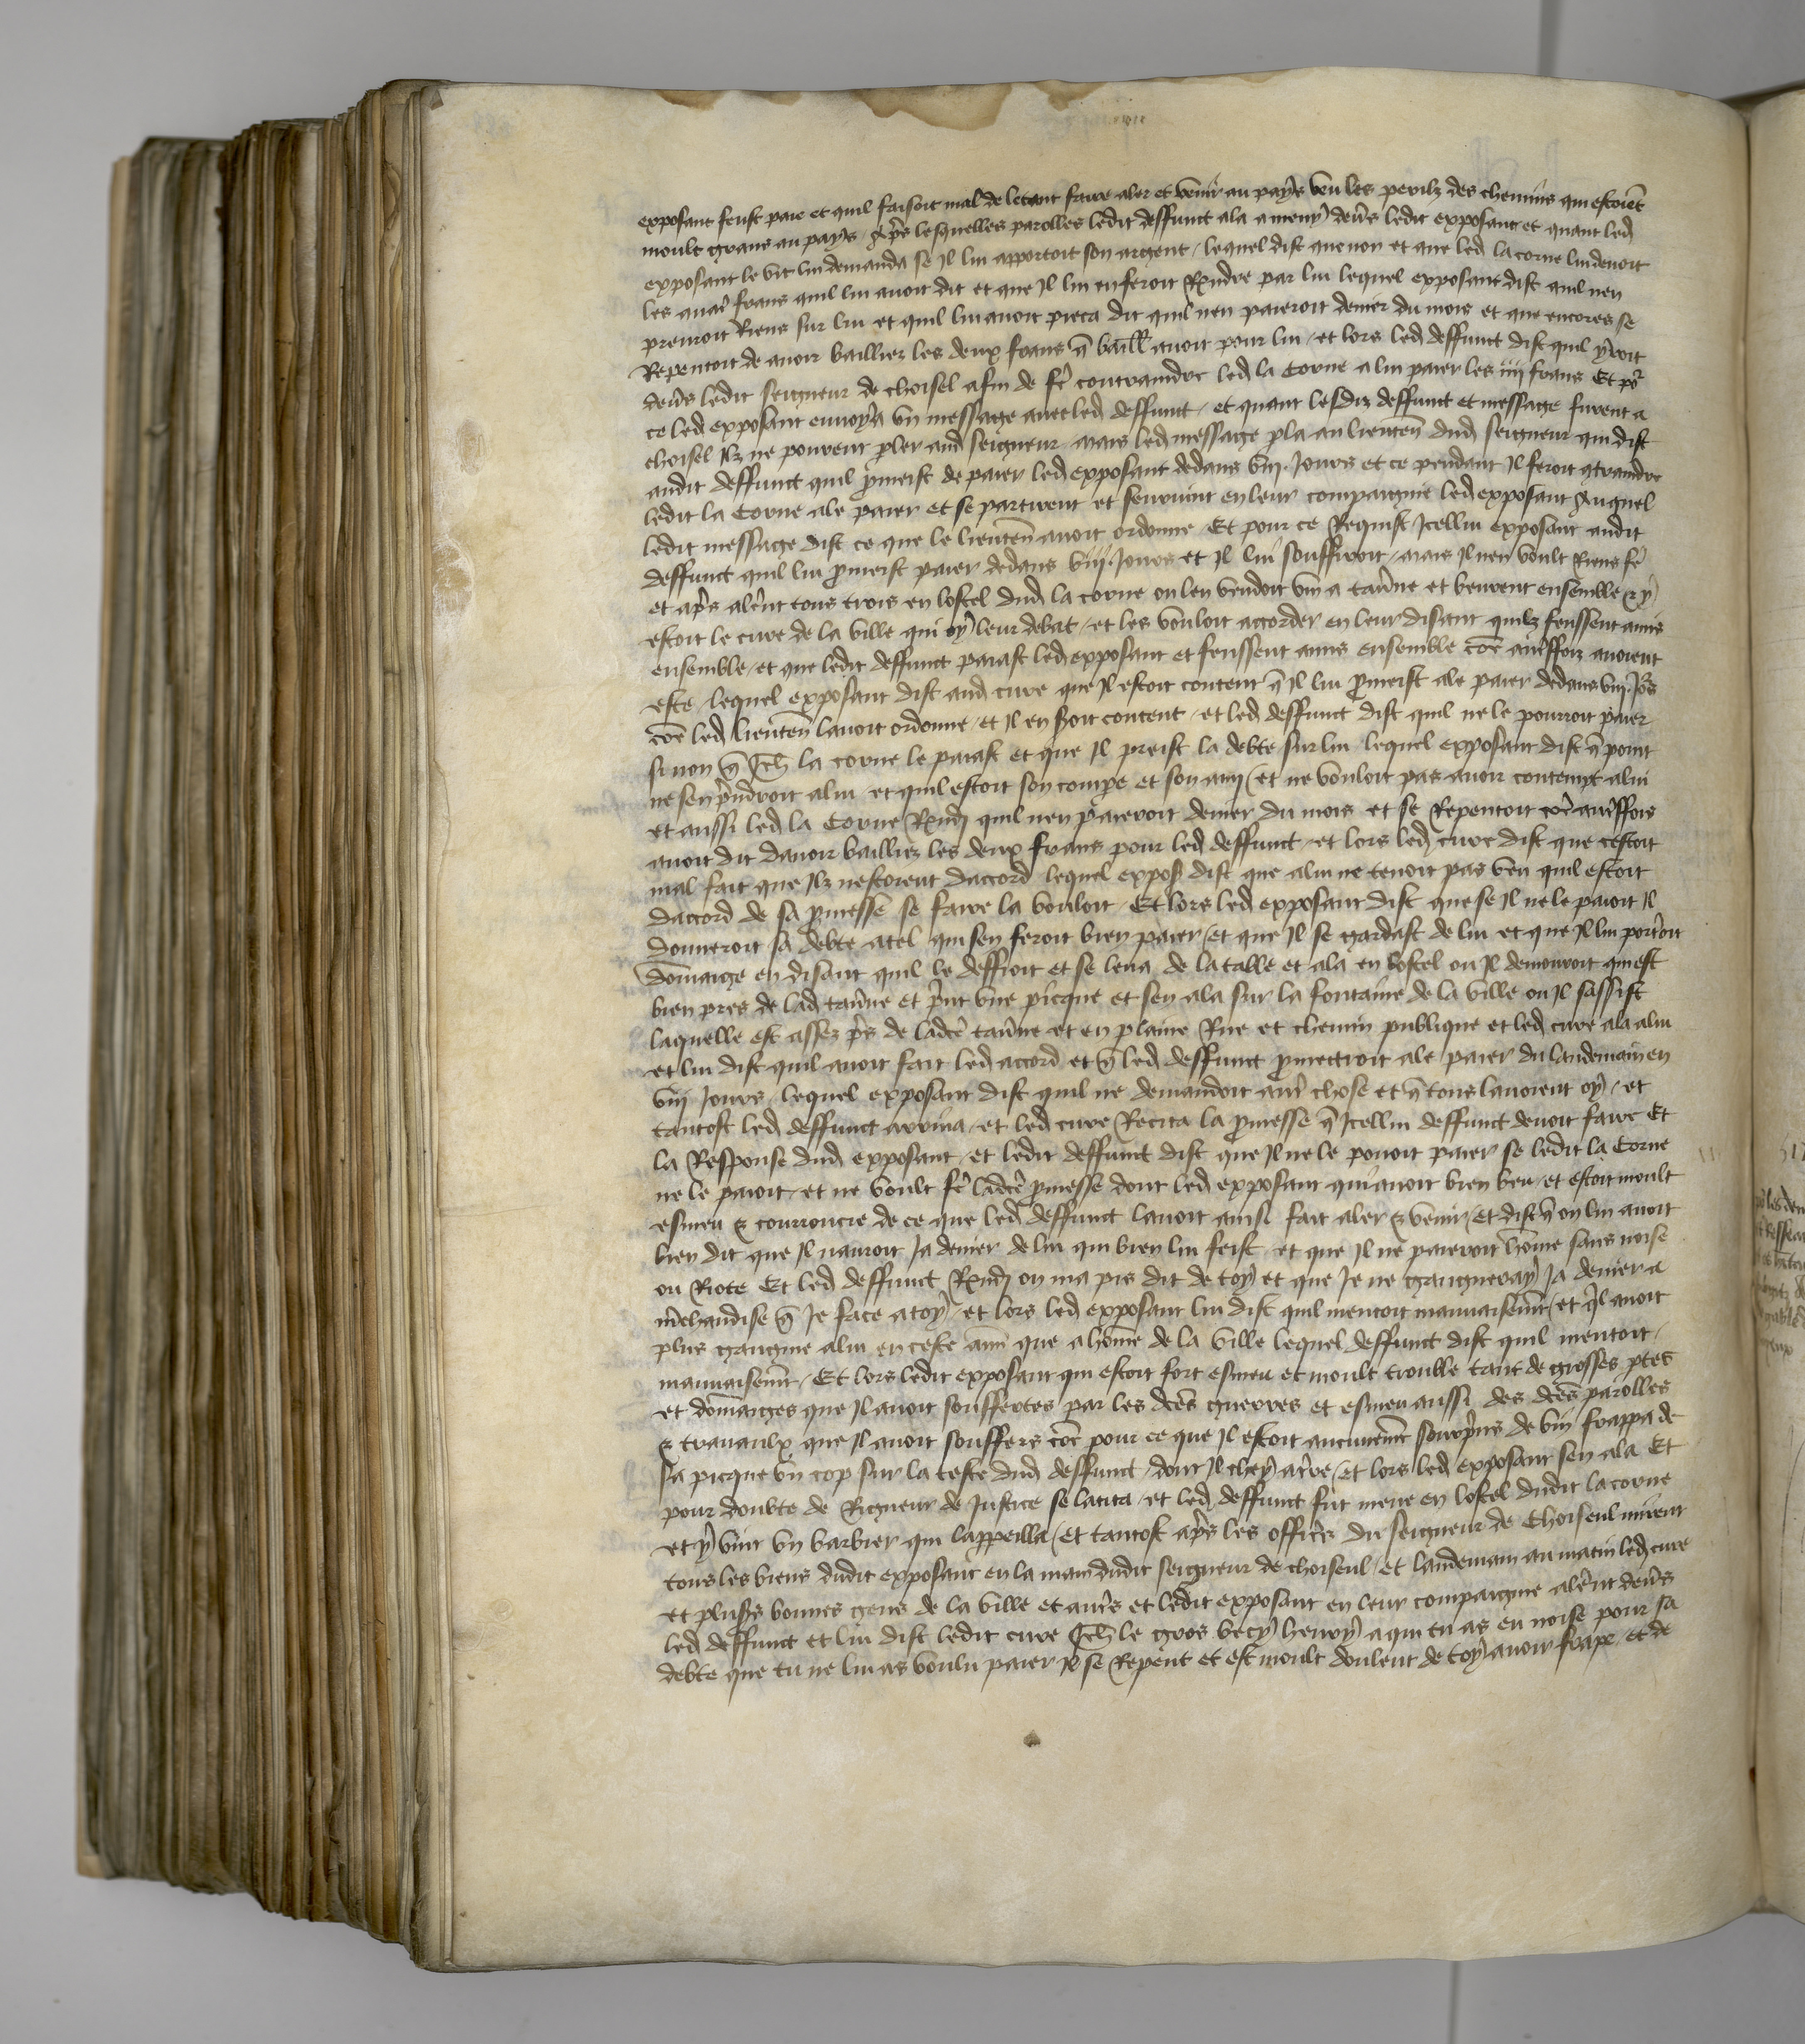 exposant feust paie et quil faisoit mal de letant faire aler et venir au pays veu les perilz des chemins qui estoiēt
moult grans au pays / Apͬs lesquelles parolles ledit deffunct ala a meny deuͬs ledit exposant et quant led
exposant le vit lui demanda se Il lui apportoit son argent / lequel dist que non et que led la corne lui devoit
les quatͬ frans quil lui avoit dit et que Il lui en feroit Rendre par lui lequel exposant dist quil nen
prenroit Riens sur lui et quil lui avoit pieca dit quil nen paieroit denier du mois et que encores se
Repentoit de avoir bailliez les deux frans q̄ baill̄ avoit pour lui / et lors led deffunct dist quil yroit
deuͬs ledit seigneur de choisel afin de fͬe contraindre led la Corne a lui paier les iiii frans Et poͬ
ce led exposant envoya vn message avec led deffunct / et quant lesdiz deffunct et message furent a
choisel Ilz ne pourent pler aud seigneur mais led message pla au lieuten̄ dud seigneur qui dist
audit deffunct quil pmeist de paier led exposant dedans viij. Jours et ce pendant Il feroit 9traindre
ledit la Corne a le paier et se partirent et seurvint en leur compaignie led exposant Auquel
ledit message dist ce que le lieuten̄ avoit ordonne Et pour ce Requist Icellui exposant audit
deffunct quil lui pmeist paier dedans viij. Jours et Il lui souffiroit / mais Il nen voult Riens fͬe
et apͬs alerēt tous trois en lostel dud la corne ou len vendoit vin a tauͬne et beurent ensemble & y
estoit le cure de la ville qui oy leur debat / et les vouloit accorder en leur disant quilz feussent amis
ensemble / et que ledit deffunct paiast led exposant et feussent amis ensemble cōe autͬffoiz avoient
este / lequel exposant dist aud cure que Il estoit content q̄ Il lui pmeist a le paier dedans viij. Joͬs
cōe led lieuten̄ lavoit ordonne / et Il en soit content / et led deffunct dist quil ne le pourroit paier
si non q̄ Jeh̄ la corne le paiast et que Il preist la debte sur lui lequel exposant dist q̄ point
ne sen pͬndroit a lui et quil estoit son compͬe et son amy / et ne vouloit pas avoir contempt a lui
et aussi led la Corne Rn̄d quil nen paieroit denier du mois et se Repentoit cōe autͬffois
avoit dit davoir bailliez les deux frans pour led deffunct / et lors led cure dist que cestoit
mal fait que Ilz nestoient daccord lequel expos dist que a lui ne tenoit pas veu quil estoit
daccord de sa pmesse se faire la vouloit / Et lors led exposant dist que se Il ne le paioit Il
donneroit sa debte a tel qui sen feroit bien paier / et que Il se gardast de lui et que Il lui portͬoit
dōmaige en disant quil le deffioit et se leva de la table et ala en lostel ou Il demouroit qui est
bien pres de lad tauͬne et pͬnt vne picque et sen ala sur la fontaine de la ville ou Il sassist
laquelle est assez pͬs de ladcē tauͬne et en plaine Rue et chemin publique et led cure ala a lui
et lui dist quil avoit fait led accord et q̄ led deffunct pmectroit a le paier du landemain en
viij Jours / lequel exposant dist quil ne demandoit autͬ chose et q̄ tous lavoient oy / et
tantost led deffunct arriva / et led cure Recita la pmesse q̄ Icellui deffunct devoit faire Et
la Response dud exposant / et ledit deffunct dist que Il ne le povoit paier se ledit la Corne
ne le paioit / et ne voult fͬe ladcē pmesse dont led exposant qui avoit bien beu / et estoit moult
esmeu & courroucie de ce que led deffunct lavoit ainsi fait aler & venir / Et dist q̄ on lui avoit
bien dit que Il nauroit Ja denier de lui qui bien lui feist / et que Il ne paieroit hōme sans noise
ou Riote Et led deffunct Rn̄d on ma pis dit de toy et que Je ne gaigneray Ja denier a
mͬchandise q̄ Je face a toy / et lors led exposant lui dist quil mentoit mauvaisemt / et q̄l avoit
plus gaigne a lui en ceste ann̄ que a hōme de la ville lequel deffunct dist quil mentoit /
mauvaisemt / Et lors ledit exposant qui estoit fort esmeu et moult trouble tant de grosses ptes
et dōmaiges que Il avoit souffertes par les dcēs guerres et esmeu aussi des dcēs parolles
& travaulx que Il avoit souffers cōe pour ce que Il estoit aucunemt sourpͬns de vin frappa de
sa picque vn cop sur la teste dud deffunct / dont Il chey a tͬre / et lors led exposant sen ala Et
pour doubte de Rigueur de Justice se latita / et led deffunct fut mene en lostel dudit la corne
et y vint vn barbier qui lappeilla / et tantost apͬs les officͬz du seigneur de Choiseul mirent
tous les biens dudit exposant en la main dudit seigneur de choiseul / et landemain au matin led cure
et plusͬs bonnes gens de la ville et autͬs et ledit exposant en leur compaignie alerēt deuͬs
led deffunct et lui dist ledit cure Jeh̄ le gros vecy henry a qui tu as eu noise pour sa
debte que tu ne lui as voulu paier Il se Repent et est moult doulent de toy avoir frape / et de